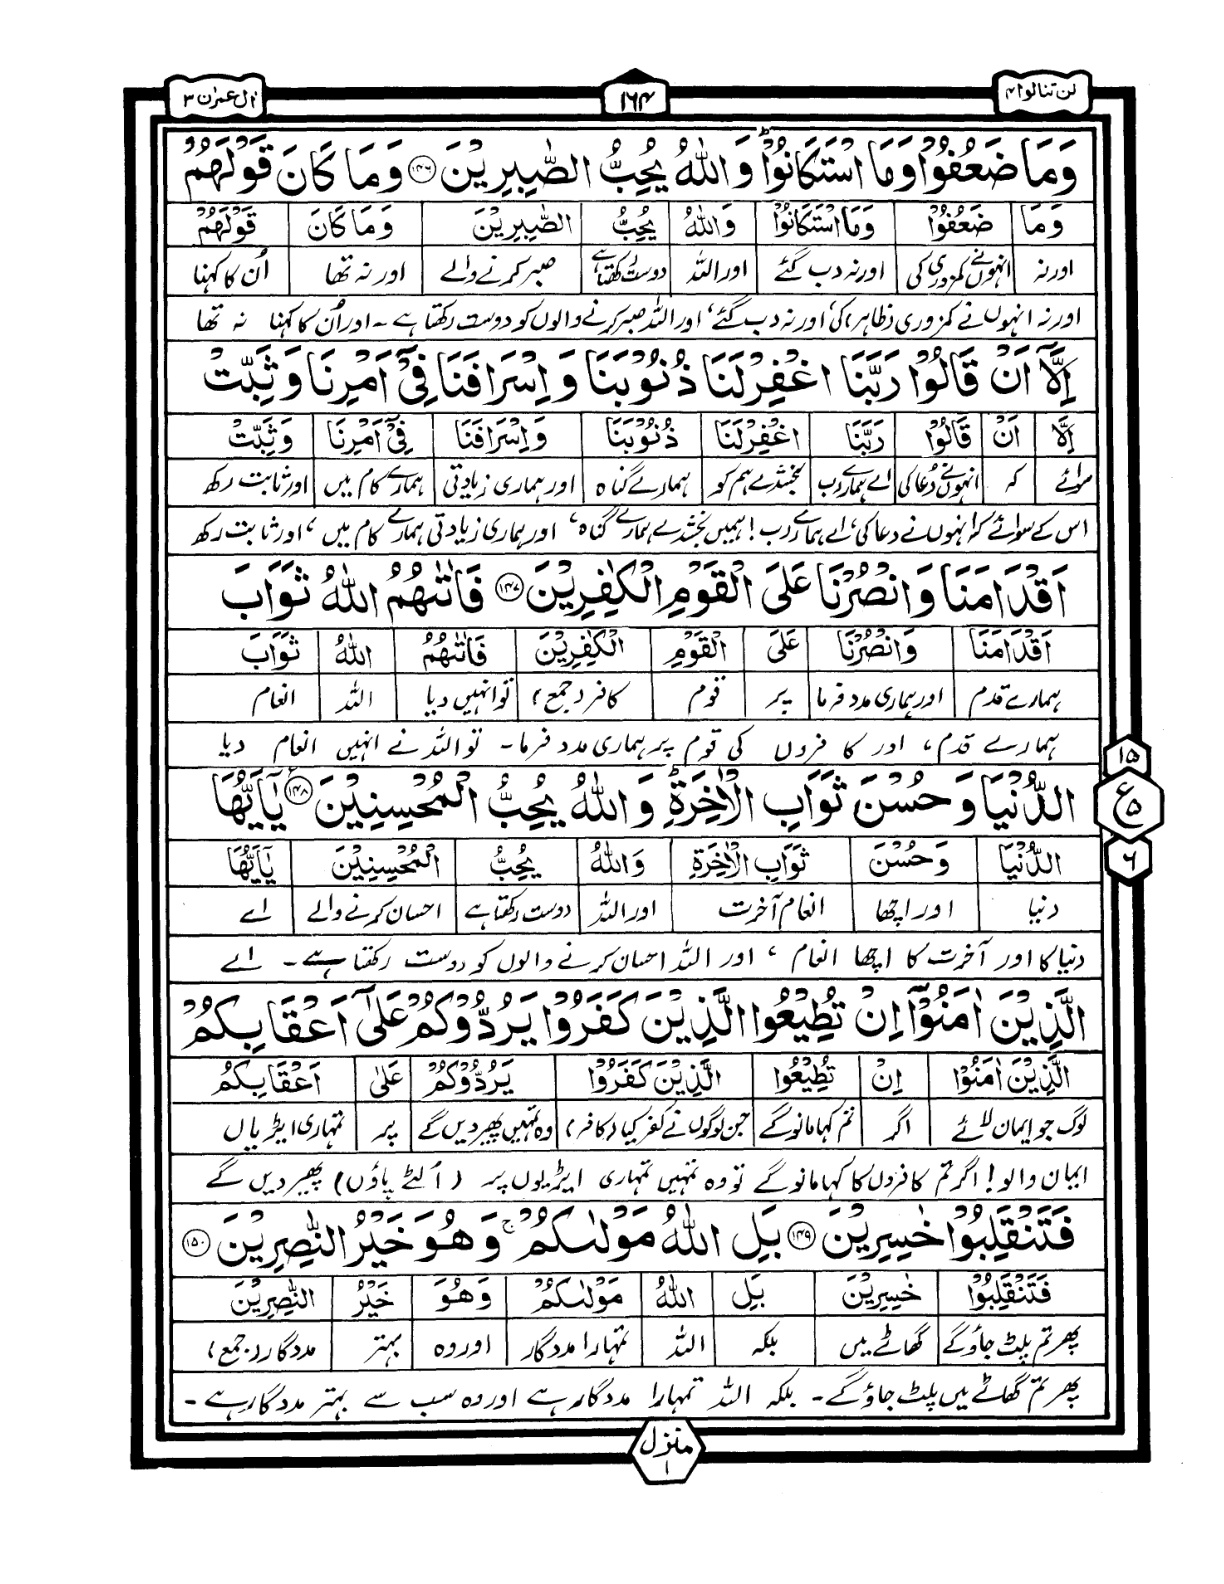 لن تنالوا ۴
۱۶۴
اٰل عمرٰن ۳
وَمَا ضَعُفُوْا وَمَا اسْتَكَانُوْا ؕ وَاللّٰهُ يُحِبُّ الصّٰبِرِيْنَ ﴿۱۴۶﴾ وَمَا كَانَ قَوْلَهُمْ
وَمَا ضَعُفُوْا وَمَا اسْتَكَانُوْا وَاللّٰهُ يُحِبُّ الصّٰبِرِيْنَ وَمَا كَانَ قَوْلَهُمْ
اور نہ انہوں نے کمزوری کی اور نہ دب گئے اور اللہ دوست رکھتا ہے صبر کرنے والے اور نہ تھا اُن کا کہنا
اور نہ انہوں نے کمزوری (ظاہر) کی، اور نہ دب گئے، اور اللہ صبر کرنے والوں کو دوست رکھتا ہے ۔ اور اُن کا کہنا نہ تھا
اِلَّاۤ اَنْ قَالُوْا رَبَّنَا اغْفِرْ لَنَا ذُنُوْبَنَا وَاِسْرَافَنَا فِيْۤ اَمْرِنَا وَثَبِّتْ
اِلَّا اَنْ قَالُوْا رَبَّنَا اغْفِرْ لَنَا ذُنُوْبَنَا وَاِسْرَافَنَا فِيْۤ اَمْرِنَا وَثَبِّتْ
سوائے کہ انہوں نے دُعا کی اے ہمارے رب بخشدے ہم کو ہمارے گناہ اور ہماری زیادتی ہمارے کام میں اور ثابت رکھ
اس کے سوائے کہ انہوں نے دعا کی، اے ہمارے رب! ہمیں بخشدے ہمارے گناہ، اور ہماری زیادتی ہمارے کام میں، اور ثابت رکھ
اَقْدَامَنَا وَانْصُرْنَا عَلَى الْقَوْمِ الْكٰفِرِيْنَ ﴿۱۴۷﴾ فَاٰتٰىهُمُ اللّٰهُ ثَوَابَ
اَقْدَامَنَا وَانْصُرْنَا عَلَى الْقَوْمِ الْكٰفِرِيْنَ فَاٰتٰىهُمُ اللّٰهُ ثَوَابَ
ہمارے قدم اور ہماری مدد فرما پر قوم کافر (جمع) تو انہیں دیا اللہ انعام
ہمارے قدم، اور کافروں کی قوم پر ہماری مدد فرما ۔ تو اللہ نے انہیں انعام دیا
۱۵
الدُّنْيَا وَحُسْنَ ثَوَابِ الْاٰخِرَةِ ؕ وَاللّٰهُ يُحِبُّ الْمُحْسِنِيْنَ ﴿۱۴۸﴾ يٰۤاَيُّهَا
ع ۵
الدُّنْيَا وَحُسْنَ ثَوَابِ الْاٰخِرَةِ وَاللّٰهُ يُحِبُّ الْمُحْسِنِيْنَ يٰۤاَيُّهَا
۶
دنیا اور اچھا انعام آخرت اور اللہ دوست رکھتا ہے احسان کرنے والے اے
دنیا کا اور آخرت کا اچھا انعام، اور اللہ احسان کرنے والوں کو دوست رکھتا ہے ۔ اے
الَّذِيْنَ اٰمَنُوْۤا اِنْ تُطِيْعُوا الَّذِيْنَ كَفَرُوْا يَرُدُّوْكُمْ عَلٰۤى اَعْقَابِكُمْ
الَّذِيْنَ اٰمَنُوْا اِنْ تُطِيْعُوا الَّذِيْنَ كَفَرُوْا يَرُدُّوْكُمْ عَلٰى اَعْقَابِكُمْ
لوگ جو ایمان لائے اگر تم کہا مانو گے جن لوگوں نے کفر کیا (کافر) وہ تمہیں پھیر دیں گے پر تمہاری ایڑیاں
ایمان والو! اگر تم کافروں کا کہا مانو گے تو وہ تمہیں تمہاری ایڑیوں پر (اُلٹے پاؤں) پھیر دیں گے
فَتَنْقَلِبُوْا خٰسِرِيْنَ ﴿۱۴۹﴾ بَلِ اللّٰهُ مَوْلٰىكُمْ ۚ وَهُوَ خَيْرُ النّٰصِرِيْنَ ﴿۱۵۰﴾
فَتَنْقَلِبُوْا خٰسِرِيْنَ بَلِ اللّٰهُ مَوْلٰىكُمْ وَهُوَ خَيْرُ النّٰصِرِيْنَ
پھر تم پلٹ جاؤ گے گھاٹے میں بلکہ اللہ تمہارا مددگار اور وہ بہتر مددگار (جمع)
پھر تم گھاٹے میں پلٹ جاؤ گے ۔ بلکہ اللہ تمہارا مددگار ہے اور وہ سب سے بہتر مددگار ہے ۔
منزل ۱